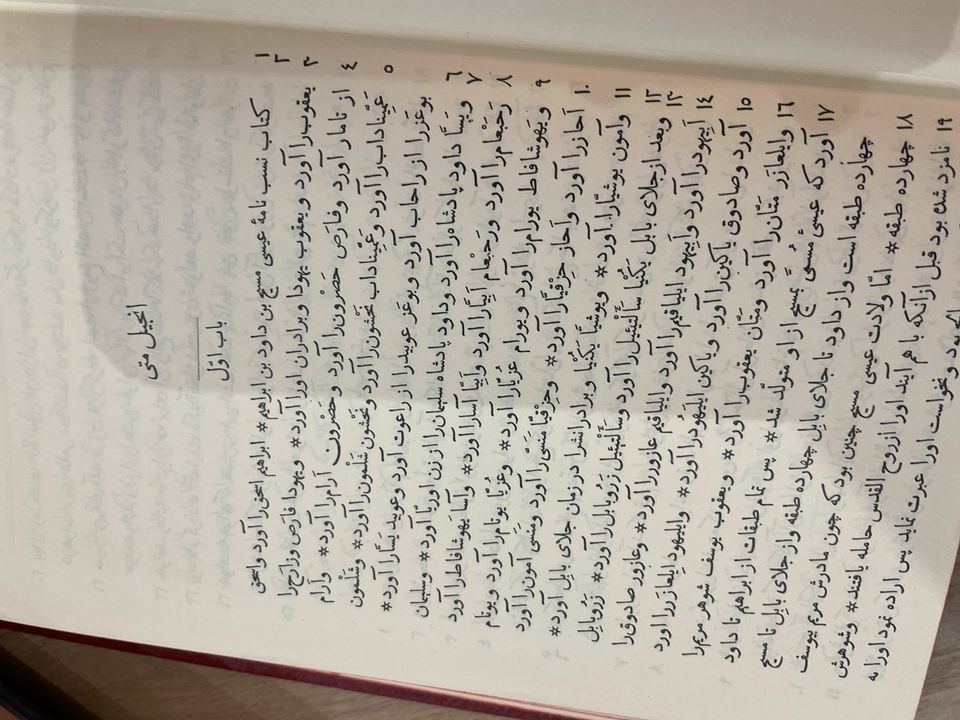 انجیل متی
باب اوّل
۱ کتاب نسب نامهٔ عیسی مسیح بن داود بن ابراهیم* ابراهیم اسحق را آورد واسحق
۲ یعقوب را آورد و یعقوب یهودا و برادران اورا آورد* ویهودا فارَص وزارَح را
۳ از تامار آورد وفارَص حَصْرون را آورد وحَصْرون اَرام را آورد* واَرام
۴ عَمِّیناداب را آورد وعَمِّیناداب نَحْشون را آورد ونَحْشون شَلْمون را آورد* وشَلْمون
۵ بوعَز را از راحاب آورد وبوعَز عوبیدرا از راعوت آورد وعوبید یَسَّارا آورد*
۶ ویَسَّا داود پادشاه را آورد وداود پادشاه سلیمان را از زن اوریّا آورد* وسلیمان
۷ رَحَبْعام را آورد ورَحَبْعام اَبِیَّارا آورد واَبِیَّا آسارا آورد* وآسا یَهوشافاط را آورد
۸ ویَهوشافاط یورام را آورد ویورام عُزیّارا آورد* وعُزیّا یوتام را آورد ویوتام
۹ اَحازرا آورد واَحاز حِزْقیّارا آورد* وحِزْقیّا مَنَسّی را آورد ومَنَسّی آمون را آورد
۱۰ وآمون یوشیّارا آورد* ویوشیّا یَکُنیا وبرادرانشرا در زمان جلای بابل آورد*
۱۱ وبعد از جلای بابل یَکُنیا سَأَلْتیئیل را آورد وسَأَلْتیئیل زَرُوبابِل را آورد* زَرُوبابل
۱۲ اَبیهودرا آورد واَبیهود ایلیاقیم را آورد وایلیاقیم عازوررا آورد* وعازور صادوق را
۱۳ آورد وصادوق یاکین را آورد ویاکین ایلیهودرا آورد* وایلیهود ایلعازَررا آورد
۱۴ وایلعازَر مَتّان را آورد ومَتّان یعقوب را آورد* ویعقوب یوسف شوهر مریم را
۱۵ آورد که عیسیٔ مُسَمّی بمسیح از او متولّد شد* پس تمام طبقات از ابراهیم تا داود
۱۶ چهارده طبقه است واز داود تا جلای بابل چهارده طبقه واز جلای بابِل تا مسیح
۱۷ چهارده طبقه* امّا ولادت عیسی مسیح چنین بود که چون مادرش مریم بیوسف
۱۸ نامزد شده بود قبل از آنکه با هم آیند اورا از روح القدس حامله یافتند* وشوهرش
۱۹ بود ونخواست اورا عبرت نماید پس اراده نمود اورا به